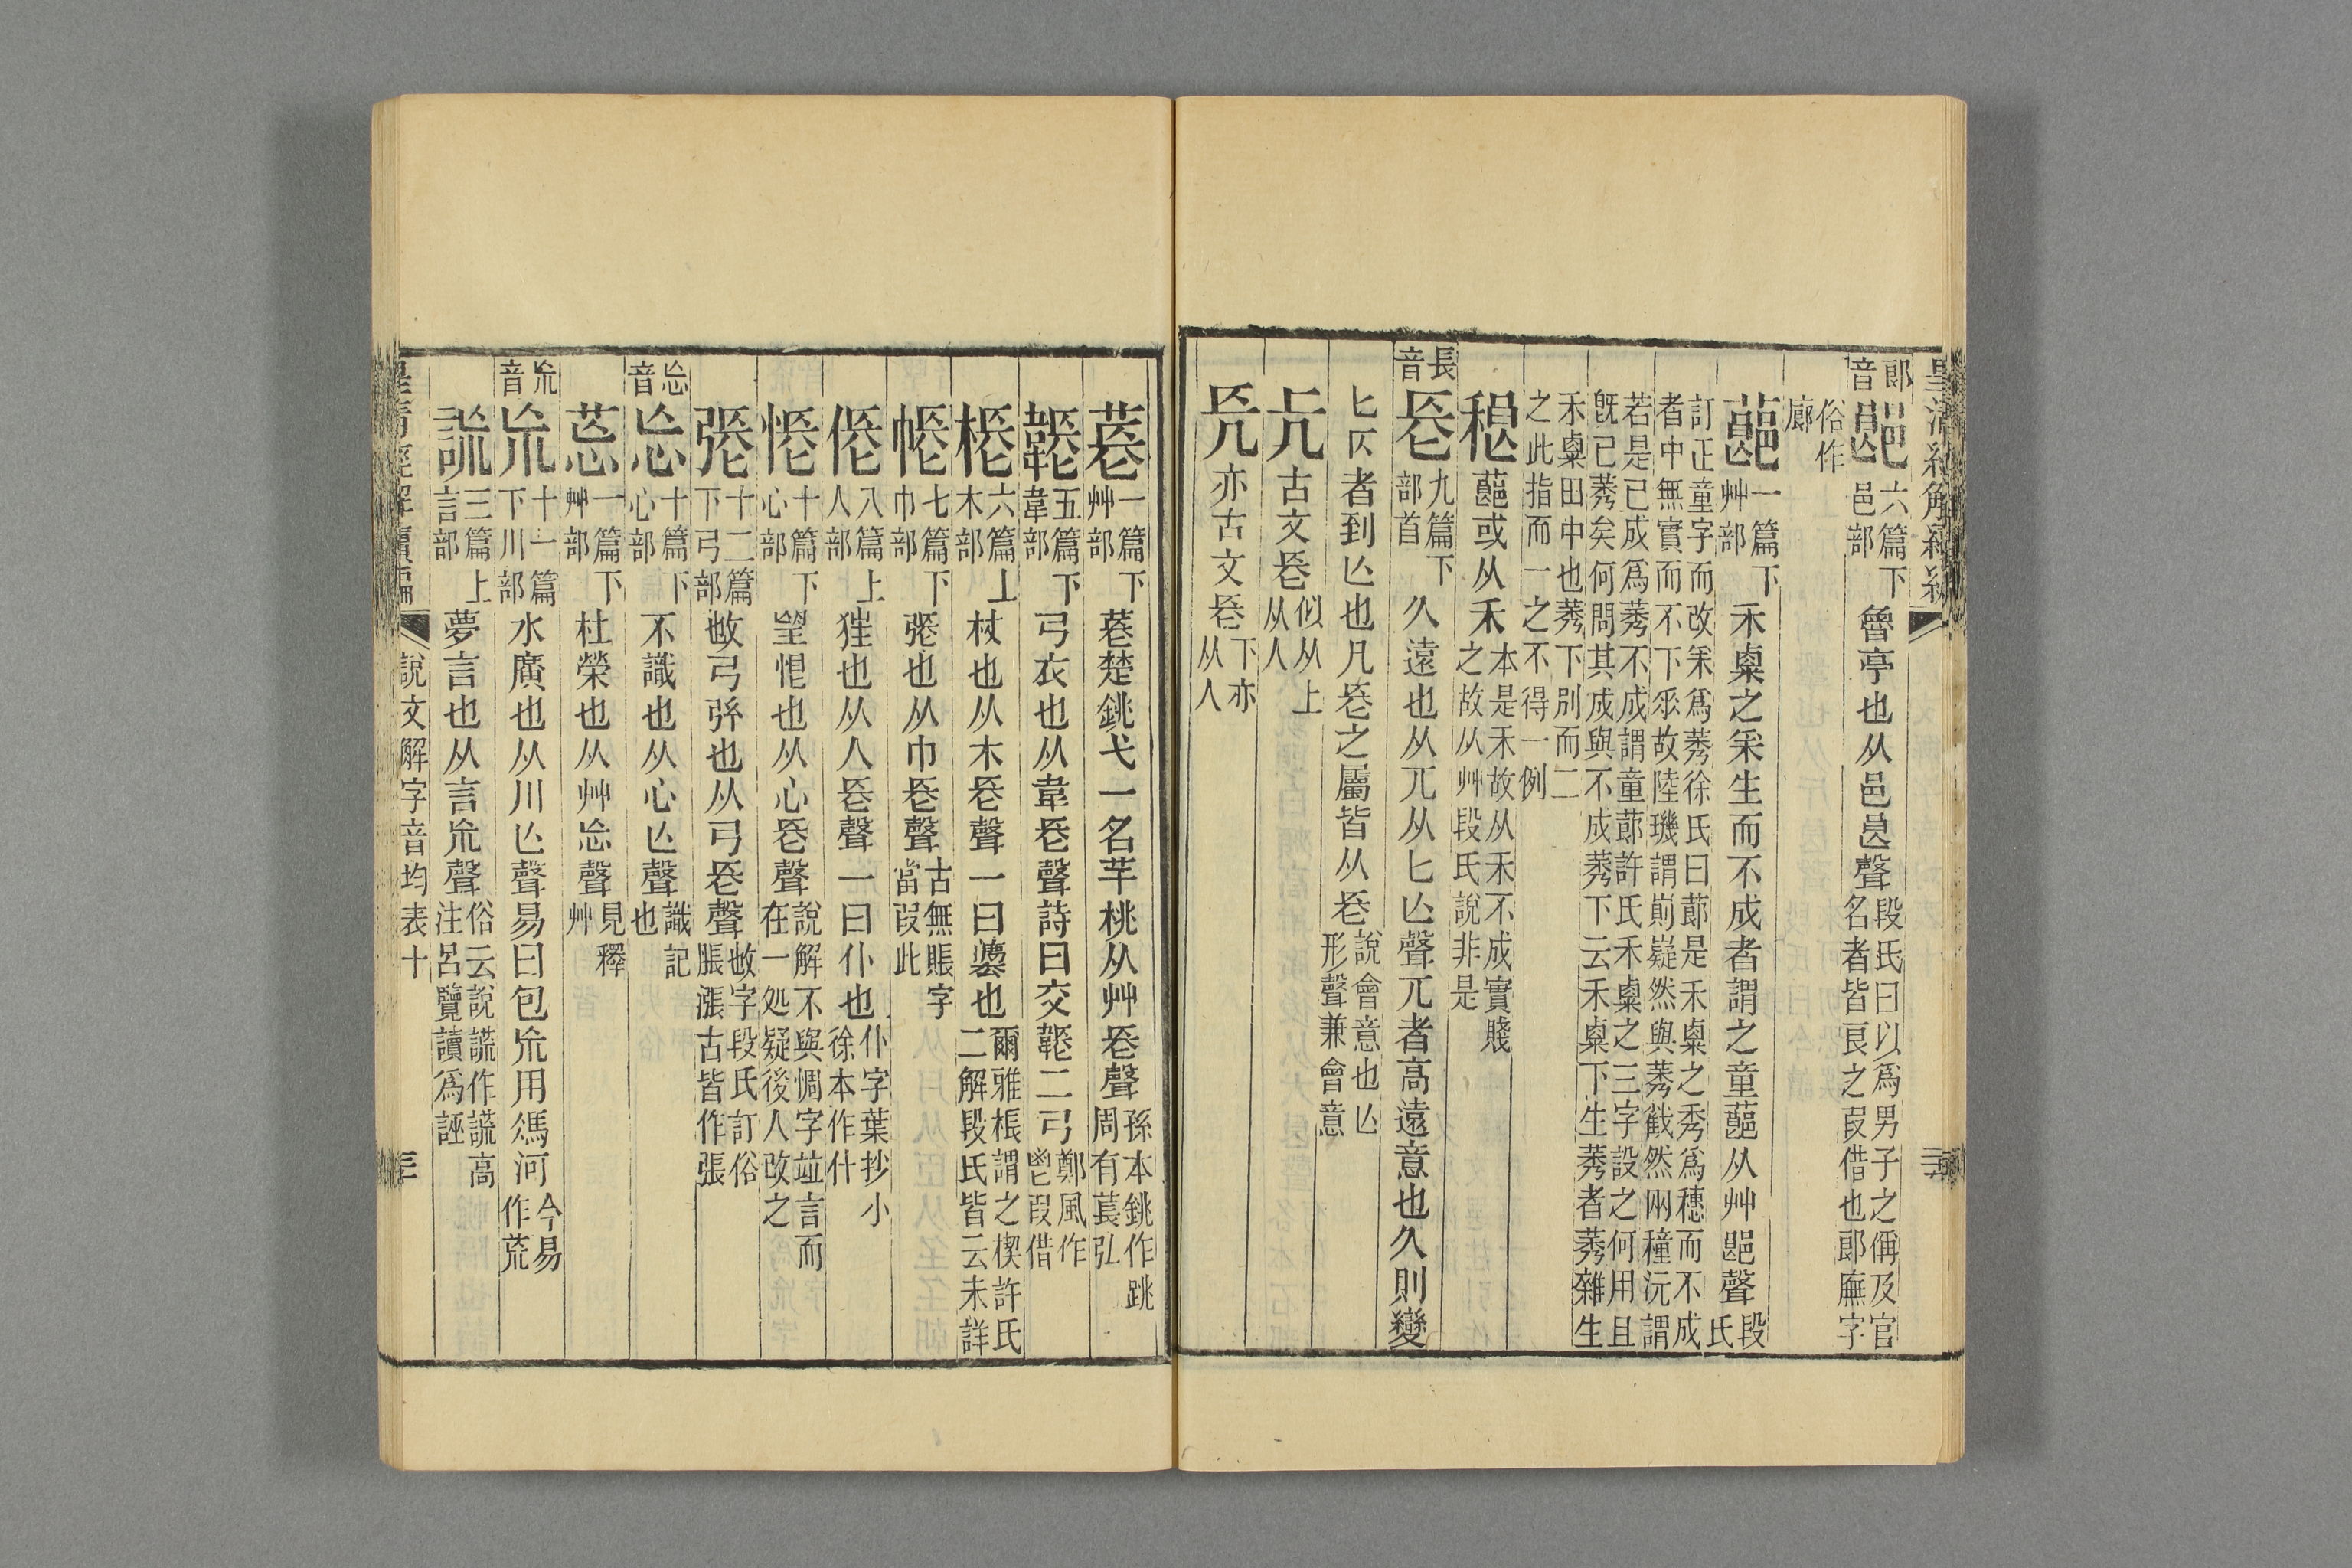 郎音 六篇下邑部 魯亭也从邑𥃩聲 段氏曰以爲男子之偁及官名者皆良之叚借也郎廡字
俗作廊
一篇下艸部 禾粟之采生而不成者謂之童蓈从艸郎聲 段氏
訂正童字而改采爲莠徐氏曰蓈是禾粟之秀爲穗而不成者中無實而不下垂故陸璣謂崱嶷然與莠戳然兩穜沅謂
若是已成爲莠不成謂童蓈許氏禾粟之三字設之何用且旣已莠矣何問其成與不成莠下云禾粟下生莠者莠雜生
禾粟田中也莠下別而二之此指而一之不得一例
稂 蓈或从禾 本是禾故从禾不成實賤之故从艸段氏說非是
長音 長 九篇下部首 久遠也从兀从匕亾聲兀者高遠意也久則變
匕𠂆者到亾也凡長之屬皆从長 說會意也亾形聲兼會意
古文長 似从上从人
亦古文長 下亦从人
萇 一篇下艸部 萇楚銚弋一名羊桃从艸長聲 孫本銚作跳周有萇弘
韔 五篇下韋部 弓衣也从韋長聲詩曰交韔二弓 鄭風作鬯叚借
棖 六篇上木部 杖也从木長聲一曰法也 爾雅棖謂之楔許氏二解段氏皆云未詳
帳 七篇下巾部 張也从巾長聲 古無賬字當叚此
倀 八篇上人部 狂也从人長聲一曰仆也 仆字葉抄小徐本作什
悵 十篇下心部 望恨也从心長聲 說解不與惆字竝言而在一処疑後人改之
張 十二篇下弓部 施弓弦也从弓長聲 施字段氏訂俗脹漲古皆作張
忘音 忘 十篇下心部 不識也从心亾聲 識記也
一篇下艸部 杜榮也从艸忘聲 見釋艸
㠩音 㠩 十一篇下川部 水廣也从川亾聲易曰包㠩用馮河 今易作荒
三篇上言部 夢言也从言㠩聲 俗云說謊作謊高注呂覽讀爲誣
說文解字音均表十